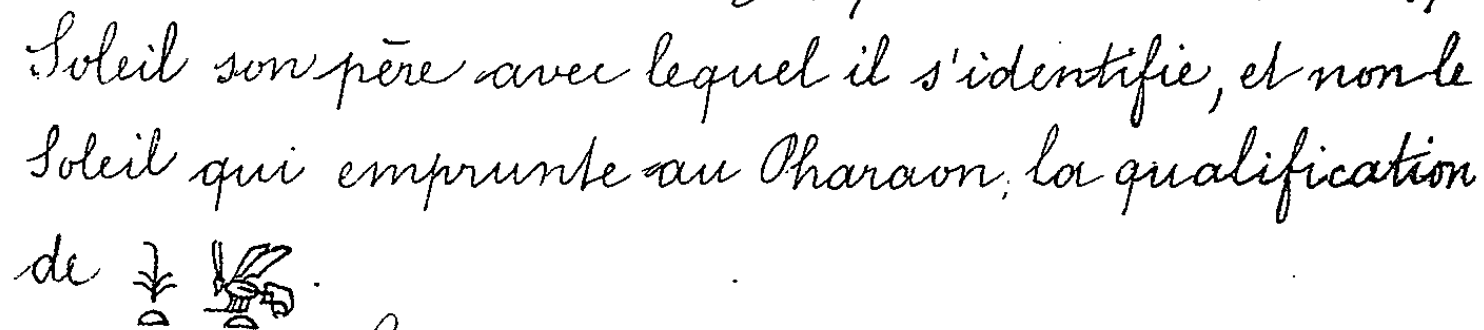 Soleil son père avec lequel il s'identifie, et non le
Soleil qui emprunte au Pharaon, la qualification
de 𓇓𓏏 𓆤𓏏.